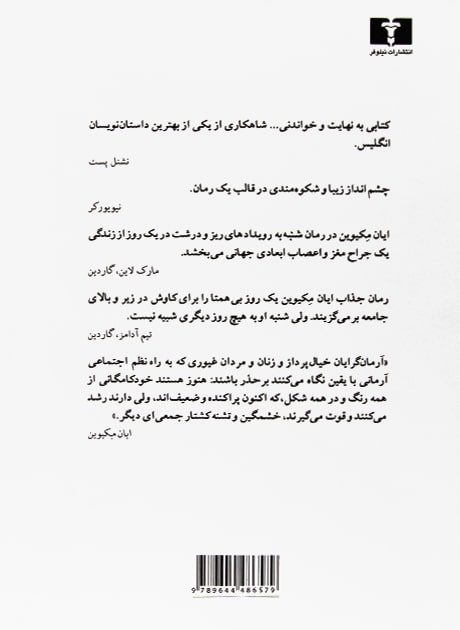 انتشارات نیلوفر
کتابی به نهایت و خواندنی... شاهکاری از یکی از بهترین داستان‌نویسان
انگلیس.
نشنل پست
چشم انداز زیبا و شکوه‌مندی در قالب یک رمان.
نیویورکر
ایان مِکیوین در رمان شنبه به رویدادهای ریز و درشت در یک روز از زندگی
یک جراح مغز و اعصاب ابعادی جهانی می‌بخشد.
مارک لاین، گاردین
رمان جذاب ایان مِکیوین یک روز بی همتا را برای کاوش در زیر و بالای
جامعه برمی‌گزیند. ولی شنبه او به هیچ روز دیگری شبیه نیست.
تیم آدامز، گاردین
«آرمان‌گرایان خیال‌پرداز و زنان و مردان غیوری که به راه نظم اجتماعی
آرمانی با یقین نگاه می‌کنند برحذر باشند: هنوز هستند خودکامگانی از
همه رنگ و در همه شکل، که اکنون پراکنده و ضعیف‌اند، ولی دارند رشد
می‌کنند و قوت می‌گیرند، خشمگین و تشنه کشتار جمعی‌ای دیگر.»
ایان مِکیوین
9 789644 486579